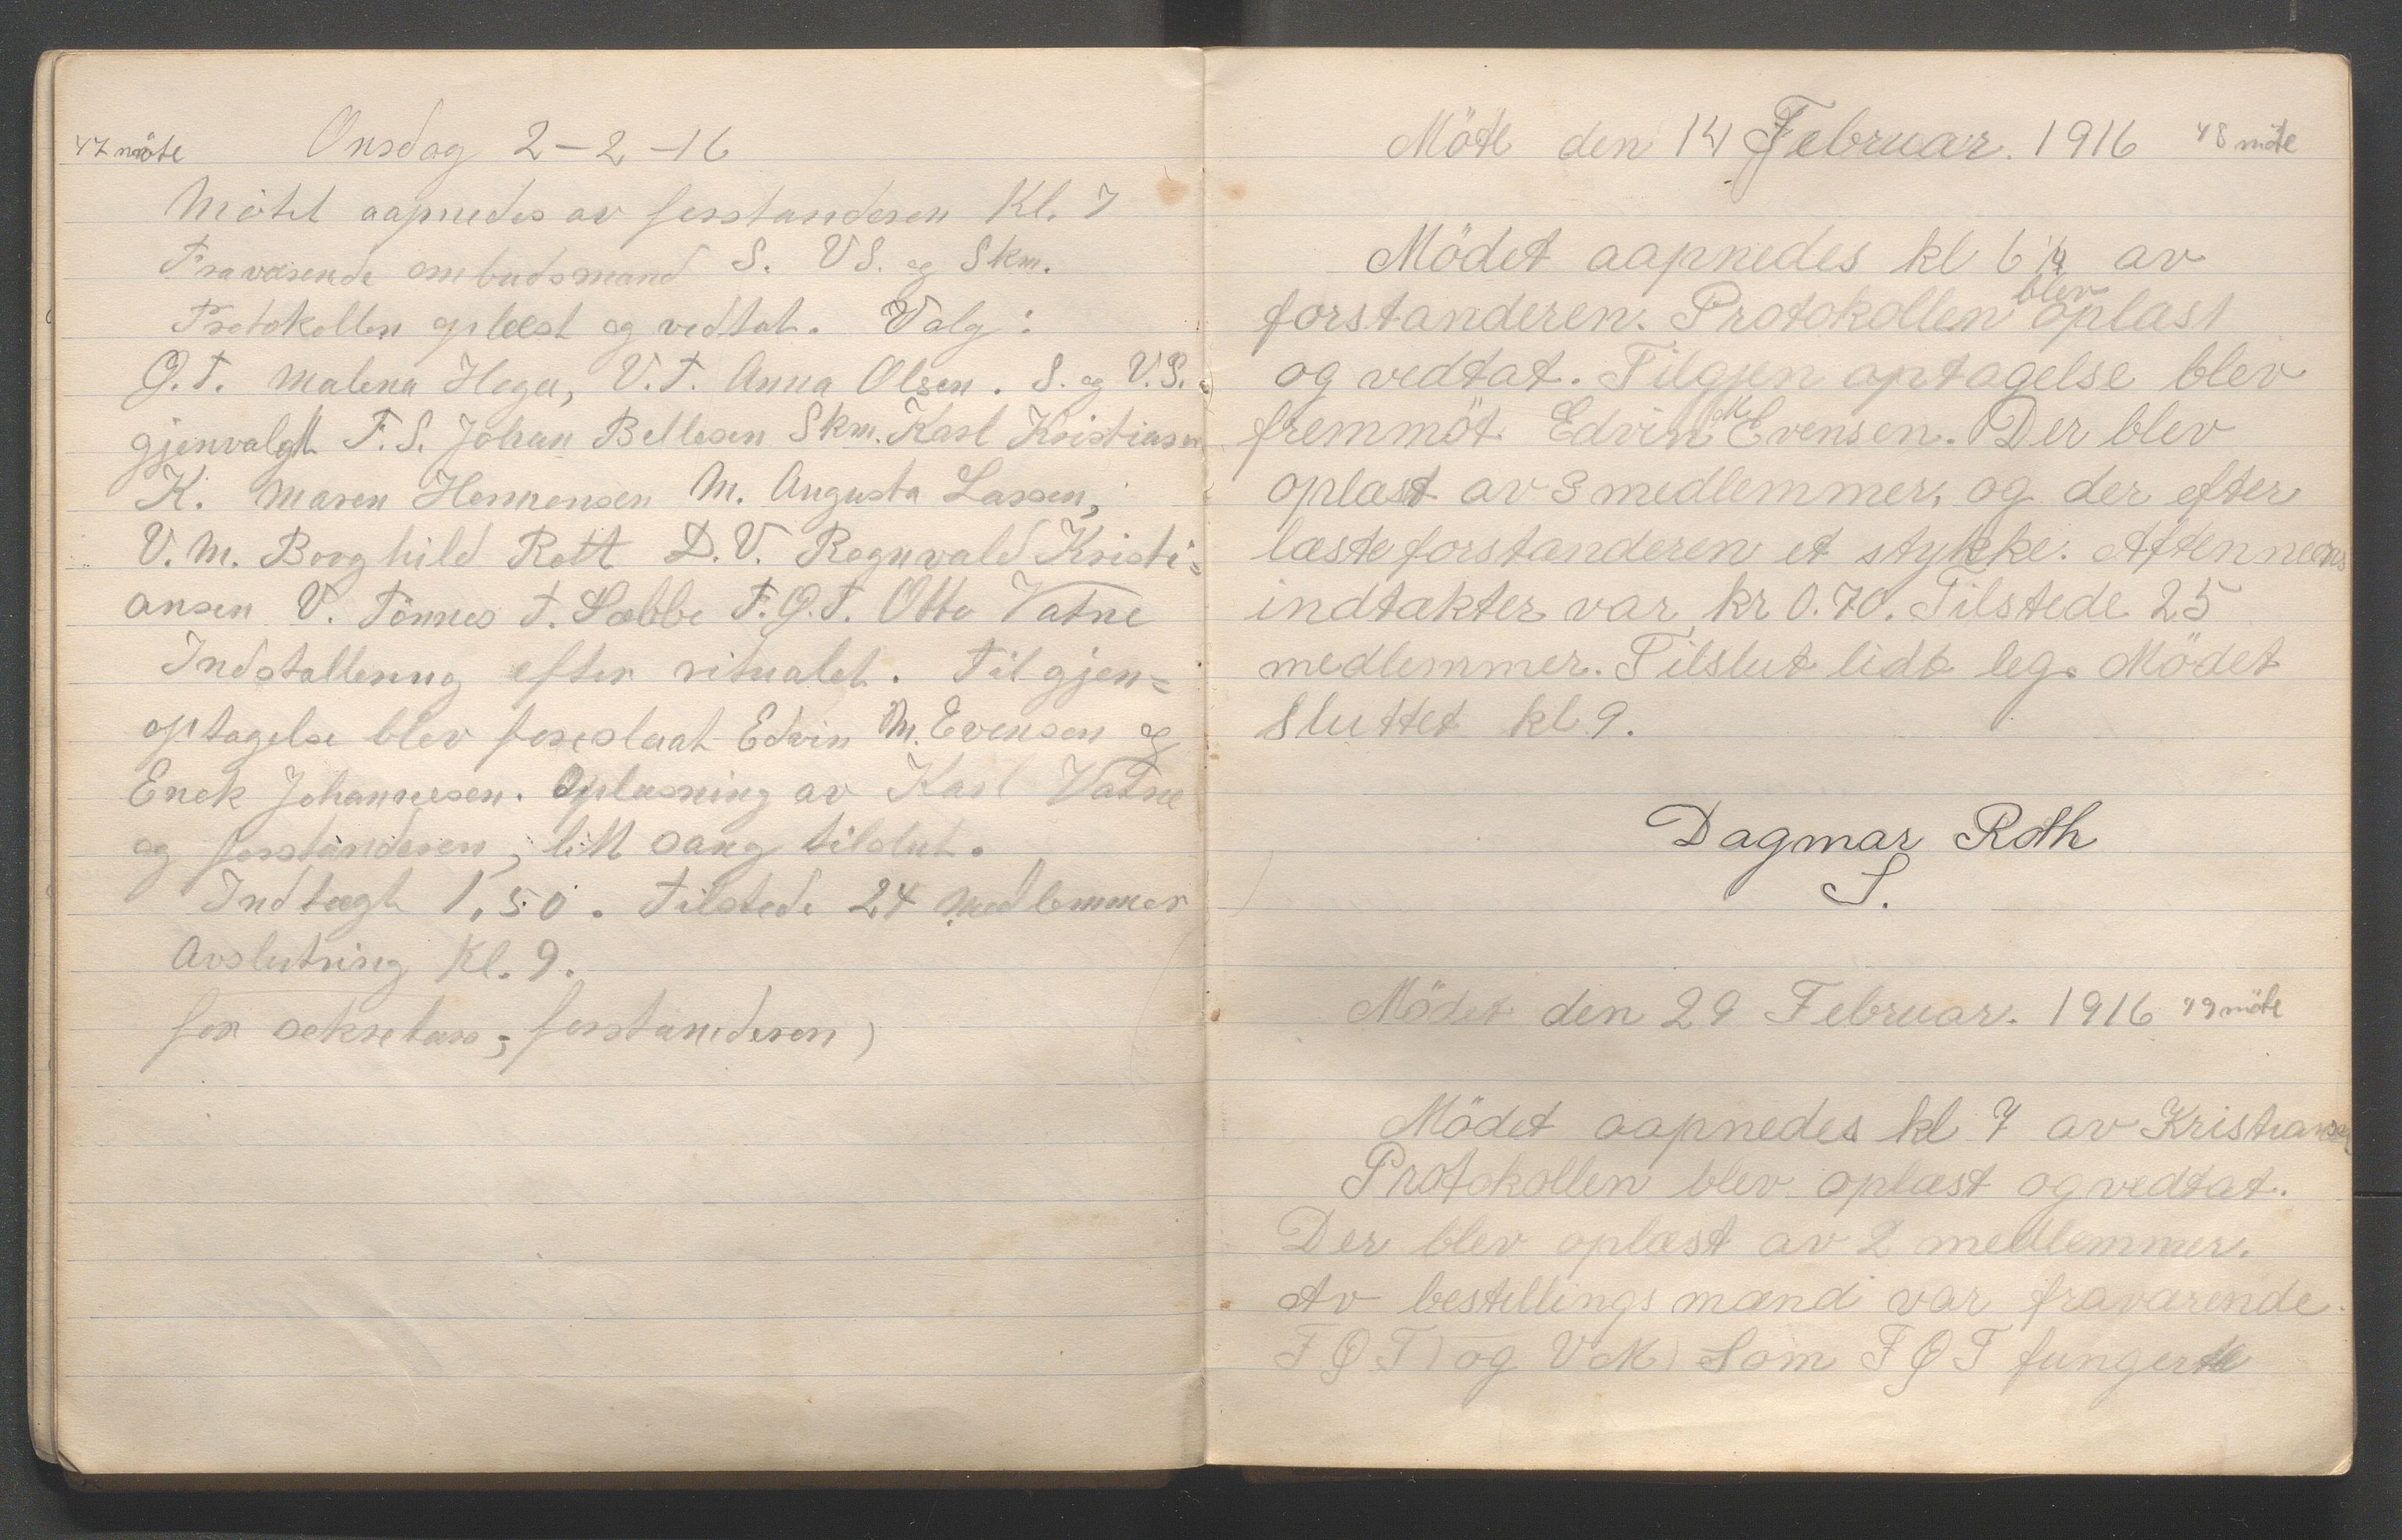 47 möte Onsdag 2-2-16
Mötet aapnedes av forstanderen Kl. 7
Fraværende ombudsmænd S. VS. og Skm.
Protokollen oplæst og vedtat. Valg:
Ø.T. Malena Hega, V.T. Anna Olsen. S. og V.S.
gjenvalgt F.S. Johan Bellesen Skm. Karl Kristiansen
K. Maren Henrensen M. Augusta Lassen,
V.M. Borghild Rott D.V. Ragnvald Kristi=
ansen V. Tönnes T. Sæbbe F.Ø.T. Otto Vatne
Indstallering efter ritualet. Til gjen=
optagelse blev foreslaat Edvin M. Evensen og
Enok Johannesen. Oplæsning av Karl Vatne
og forstanderen, litt sang tilslut.
Indtægt 1,50. Tilstede 24 medlemmer
Avslutning Kl. 9.
for sekretær; forstanderen)
Möte den 14 Februar. 1916 48 möte
Mödet aapnedes kl 6 1/4 av
forstanderen. Protokollen blev oplæst
og vedtat. Tilgjen optagelse blev
fremmöt Edvin M Evensen. Der blev
oplæst av 3 medlemmer, og der efter
læste forstanderen et stykke. Aftennens
indtakter var kr 0.70. Tilstede 25
medlemmer. Tilslut lidt leg. Mödet
sluttet kl 9.
Dagmar Roth
S.
Mödet den 29 Februar. 1916 49 möte
Mödet aapnedes kl 7 av Kristiansen
Protokollen blev oplæst og vedtat.
Der blev oplæst av 2 medlemmer.
Av bestillings mænd var fraværende.
F Ø T) og V M) Som F Ø T fungerte